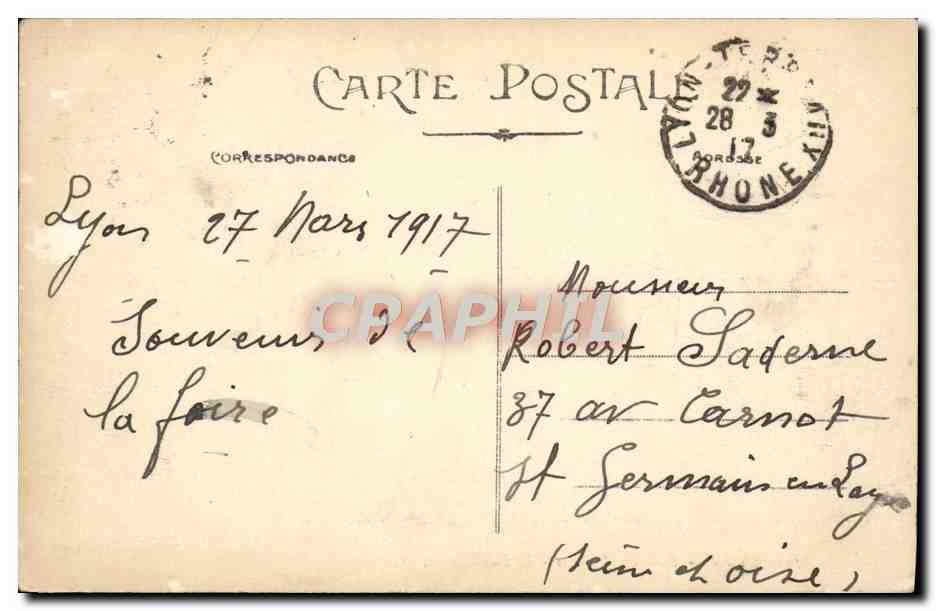 CARTE POSTALE
CORRESPONDANCE
ADRESSE
LYON-TERREAUX
22
28 3
17
RHONE
Lyon 27 Mars 1917
Souvenir de
la foire
Monsieur
Robert Saderne
37 av Carnot
St Germain en Laye
(Seine et oise)
CPAPHIL